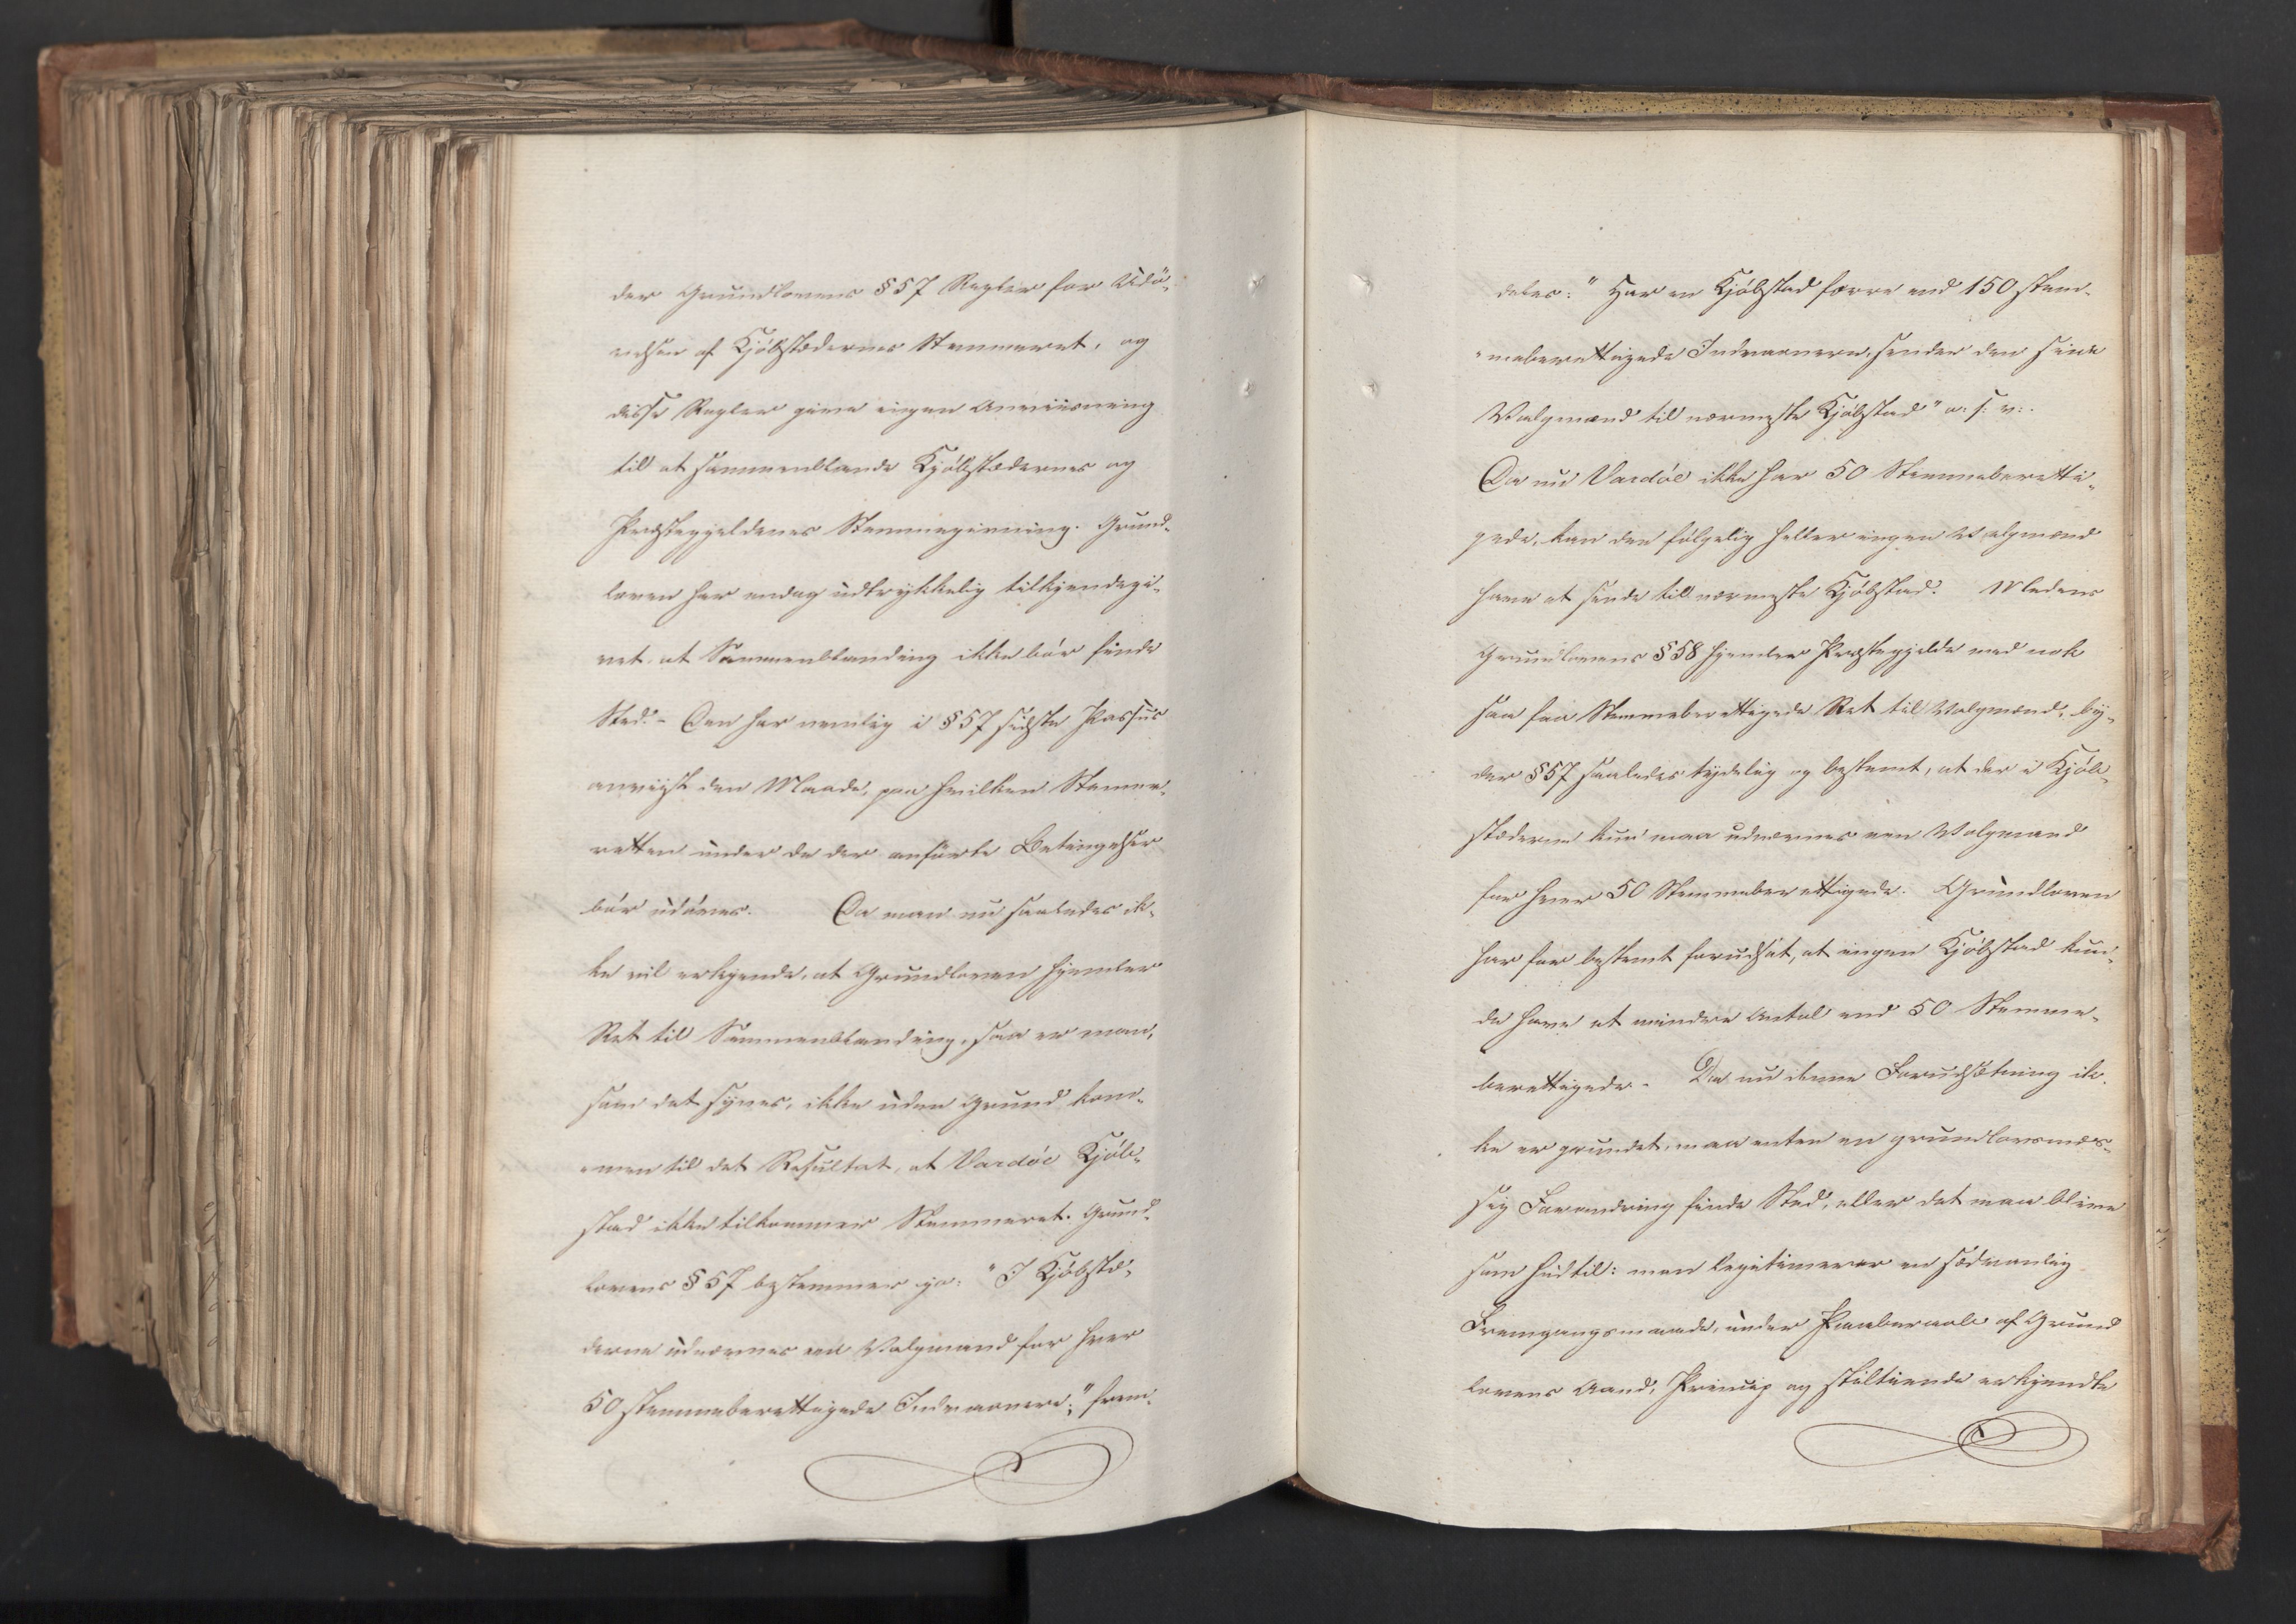 der Grundlovens § 57 Regler for Udö-
velsen af Kjöbstædernes Stemmeret, og
disse Regler give ingen Anviisning
til at sammenblande Kjöbstædernes og
Præstegjeldenes Stemmegivning. Grund-
loven har endog udtrykkelig tilkjendegi-
vet, at Sammenblanding ikke bör finde
Sted. - Den har nemlig i § 57 sidste Passus
anviist den Maade, paa hvilken Stemme-
retten under de der anförte Betingelser
bör udöves. Da man nu saaledes ik-
ke vil erkjende, at Grundloven hjemler
Ret til Sammenblanding, saa er man,
som det synes, ikke uden Grund kom-
men til det Resultat, at Vardöe Kjöb-
stad ikke tilkommer Stemmeret. Grund-
lovens § 57 bestemmer jo: "I Kjöbstæ-
derne udnævnes een Valgmand for hver
50 stemmeberettigede Indvaanere;" frem-
deles: "Har en Kjöbstad færre end 150 stem-
"meberettigede Indvaanere, sender den sine
Valgmænd til nærmeste Kjöbstad" o: s: v:.
Da nu Vardöe ikke har 50 Stemmeberetti-
gede, kan den fölgelig heller ingen Valgmænd
have at sende til nærmeste Kjöbstad. Medens
Grundlovens § 58 hjemler Præstegjelde med nok
saa faa Stemmeberettigede Ret til Valgmænd, by-
der § 57 saaledes tydelig og bestemt, at der i Kjöb-
stæderne kun maa udnævnes een Valgmand
for hver 50 Stemmeberettigede. Grundloven
har her bestemt forudsat, at ingen Kjöbstad kun-
de have et mindre Antal end 50 Stemme-
berettigede. Da nu denne Forudsætning ik-
ke er grundet, maa enten en grundlovsmæs-
sig Forandring finde Sted, eller det maa blive
som hidtil: man legitimerer en sædvanlig
Fremgangsmaade, under Paaberaab af Grund
lovens Aand, Princip og stiltiende erkjendte